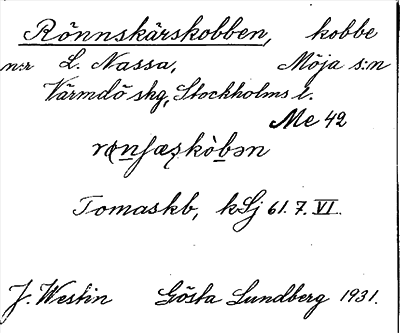 Rönnskärskobben, kobbe
n:r L. Nassa, Möja s:n
Värmdö skg, Stockholms l.
Me 42
Tomaskb, kSj 61. 7. VI.
J. Westin Gösta Lundberg 1931.